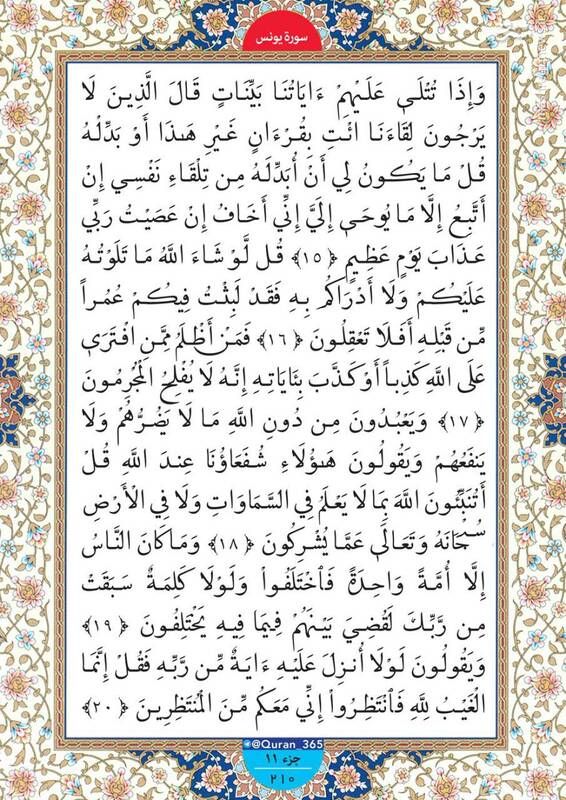 سورة يونس
وَإِذَا تُتْلَىٰ عَلَيْهِمْ ءَايَاتُنَا بَيِّنَاتٍ قَالَ الَّذِينَ لَا
يَرْجُونَ لِقَاءَنَا ائْتِ بِقُرْءَانٍ غَيْرِ هَـٰذَا أَوْ بَدِّلْهُ
قُلْ مَا يَكُونُ لِي أَنْ أُبَدِّلَهُ مِن تِلْقَاءِ نَفْسِي إِنْ
أَتَّبِعُ إِلَّا مَا يُوحَىٰ إِلَيَّ إِنِّي أَخَافُ إِنْ عَصَيْتُ رَبِّي
عَذَابَ يَوْمٍ عَظِيمٍ ﴿١٥﴾ قُل لَّوْ شَاءَ اللَّهُ مَا تَلَوْتُهُ
عَلَيْكُمْ وَلَا أَدْرَاكُم بِهِ فَقَدْ لَبِثْتُ فِيكُمْ عُمُراً
مِّن قَبْلِهِ أَفَلَا تَعْقِلُونَ ﴿١٦﴾ فَمَنْ أَظْلَمُ مِمَّنِ افْتَرَىٰ
عَلَى اللَّهِ كَذِباً أَوْ كَذَّبَ بِـَٔايَاتِهِ إِنَّهُ لَا يُفْلِحُ الْمُجْرِمُونَ
﴿١٧﴾ وَيَعْبُدُونَ مِن دُونِ اللَّهِ مَا لَا يَضُرُّهُمْ وَلَا
يَنفَعُهُمْ وَيَقُولُونَ هَـٰؤُلَاءِ شُفَعَاؤُنَا عِندَ اللَّهِ قُلْ
أَتُنَبِّئُونَ اللَّهَ بِمَا لَا يَعْلَمُ فِي السَّمَاوَاتِ وَلَا فِي الْأَرْضِ
سُبْحَانَهُ وَتَعَالَىٰ عَمَّا يُشْرِكُونَ ﴿١٨﴾ وَمَا كَانَ النَّاسُ
إِلَّا أُمَّةً وَاحِدَةً فَاخْتَلَفُواْ وَلَوْلَا كَلِمَةٌ سَبَقَتْ
مِن رَّبِّكَ لَقُضِيَ بَيْنَهُمْ فِيمَا فِيهِ يَخْتَلِفُونَ ﴿١٩﴾
وَيَقُولُونَ لَوْلَا أُنزِلَ عَلَيْهِ ءَايَةٌ مِّن رَّبِّهِ فَقُلْ إِنَّمَا
الْغَيْبُ لِلَّهِ فَانتَظِرُواْ إِنِّي مَعَكُم مِّنَ الْمُنتَظِرِينَ ﴿٢٠﴾
@Quran_365
جزء ١١
٢١٠